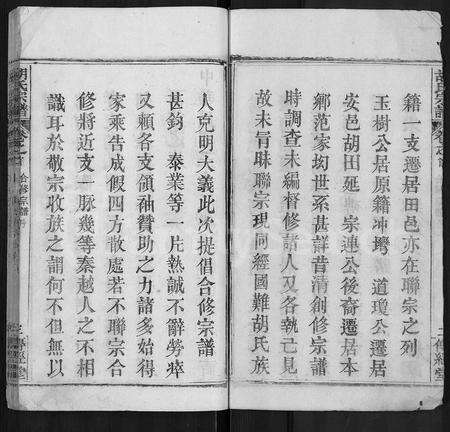 胡氏宗譜
籍一支遷居田邑亦在聯宗之列
玉樹公居原籍冲塆 道瓊公遷居
安邑胡田延 宗連公後裔遷居本
鄉范家坳世系甚詳昔清創修宗譜
時調查未編督修諸人又各執己見
故未肯昧聯宗現同經國難胡氏族
人克明大義此次提倡合修宗譜
甚鈞 泰業等一片熱誠不辭勞瘁
又賴各支領袖贊助之力諸多始得
家乘告成假四方散處若不聯宗合
修將近支一脈幾等秦越人之不相
識耳於敬宗收族之謂何不但無以
胡氏宗譜